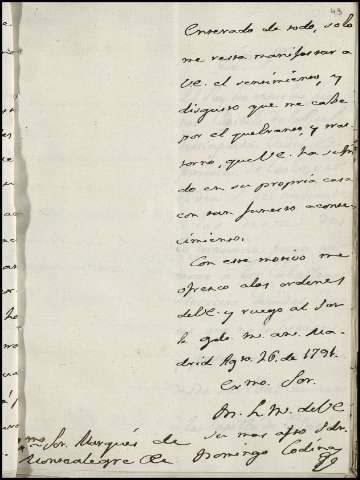 43
Enterado de todo, solo
me resta manifestar a
VE. el sentimiento, y
disgusto que me cabe
por el quebranto, y tras
torno, que VE. ha sufri
do en su propria casa
con tan funesto aconte-
cimiento.
Con este motivo me
ofresco a las ordenes
de VE. y ruego al Sor
le gde. m. an. Ma-
drid Agto. 26. de 1791.
Exmo. Sor.
B. L. M. de VE
su mas afto Sdr.
Domingo Codina
Exmo Sor. Marqués de
Montealegre &a